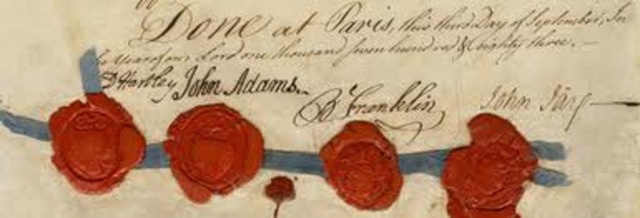 Done at Paris, this third Day of September, In
the Year of our Lord one thousand seven hundred & eighty three.—
D Hartley John Adams. B Franklin John Jay